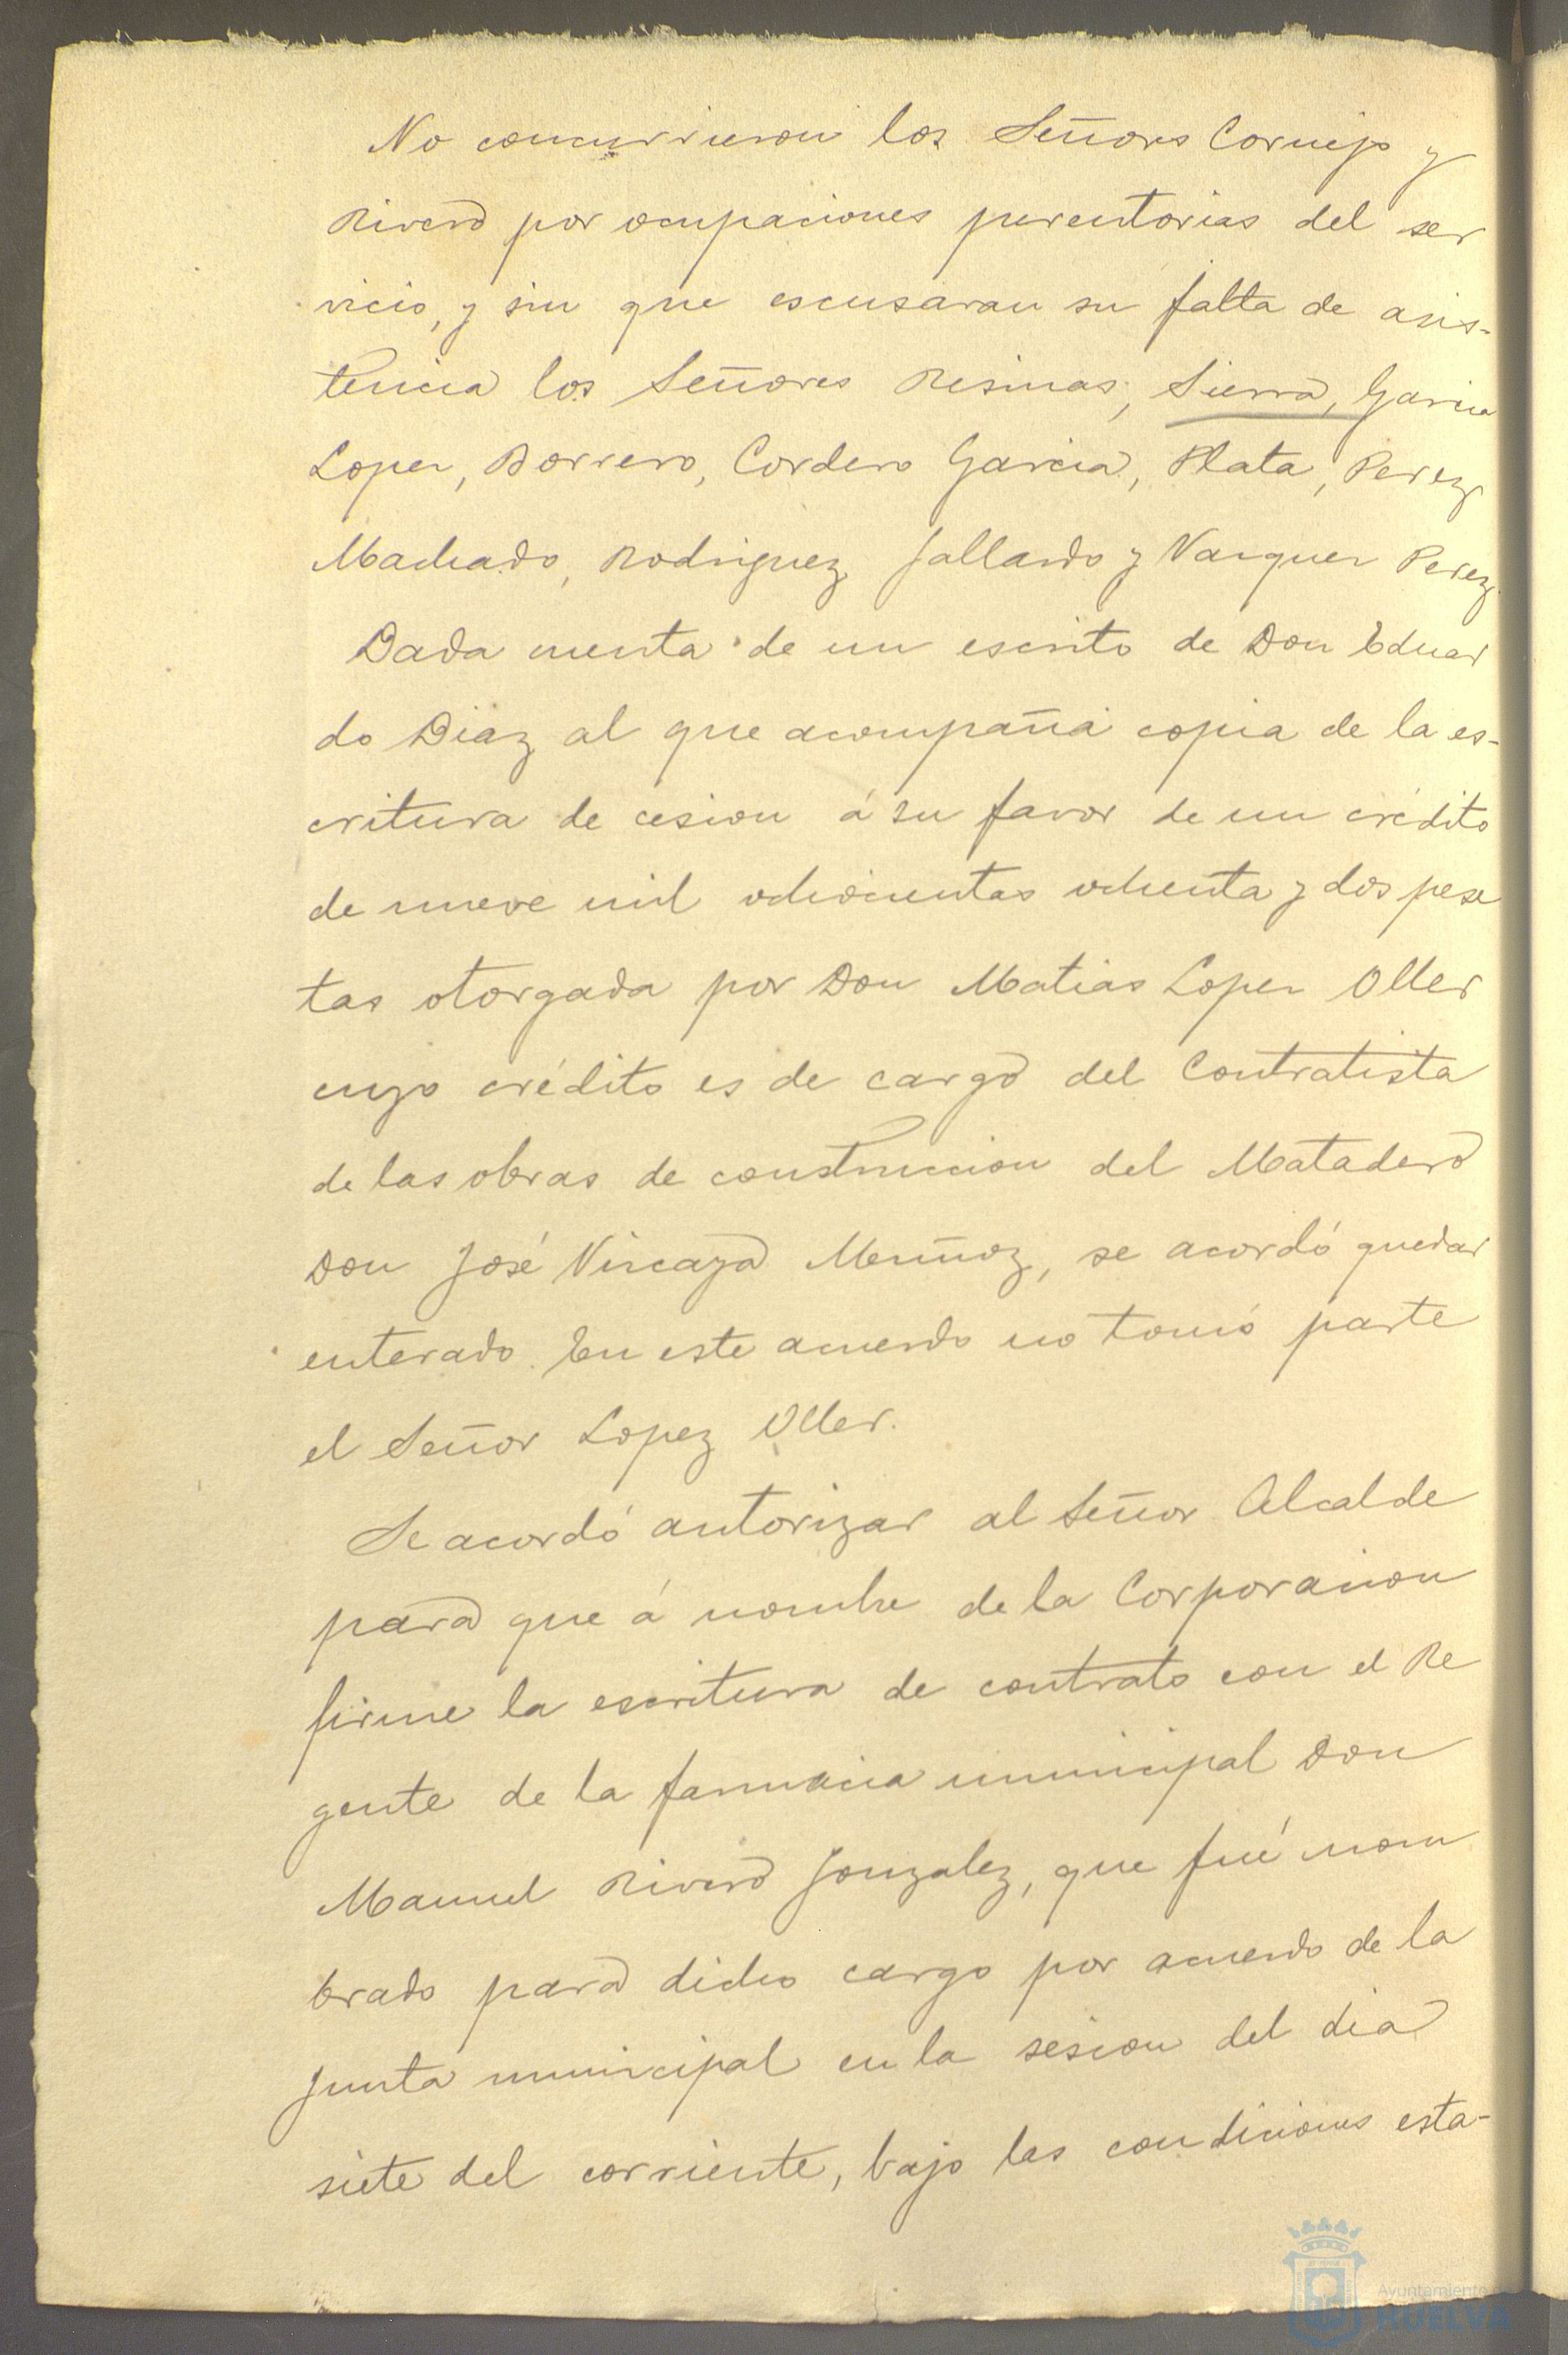 No concurrieron los Señores Cornejo y
Rivero por ocupaciones perentorias del ser
vicio, y sin que escusaran su falta de asis-
tencia los Señores Resinas, Sierra, Garcia
Lopez, Borrero, Cordero Garcia, Plata, Perez
Machado, Rodriguez Gallardo y Vazquez Perez
Dada cuenta de un escrito de Don Eduar
do Diaz al que acompaña copia de la es-
critura de cesion á su favor de un crédito
de nueve mil ochocientas ochenta y dos pese
tas otorgada por Don Matias Lopez Oller
cuyo crédito es de cargo del Contratista
de las obras de construccion del Matadero
Don José Vizcaya Muñoz, se acordó quedar
enterado. En este acuerdo no tomó parte
el Señor Lopez Oller.
Se acordó autorizar al Señor Alcalde
para que á nombre de la Corporacion
firme la escritura de contrato con el Re
gente de la farmacia municipal Don
Manuel Rivero Gonzalez, que fué nom
brado para dicho cargo por acuerdo de la
Junta municipal en la sesion del dia
siete del corriente, bajo las condiciones esta-
Ayuntamiento de
HUELVA